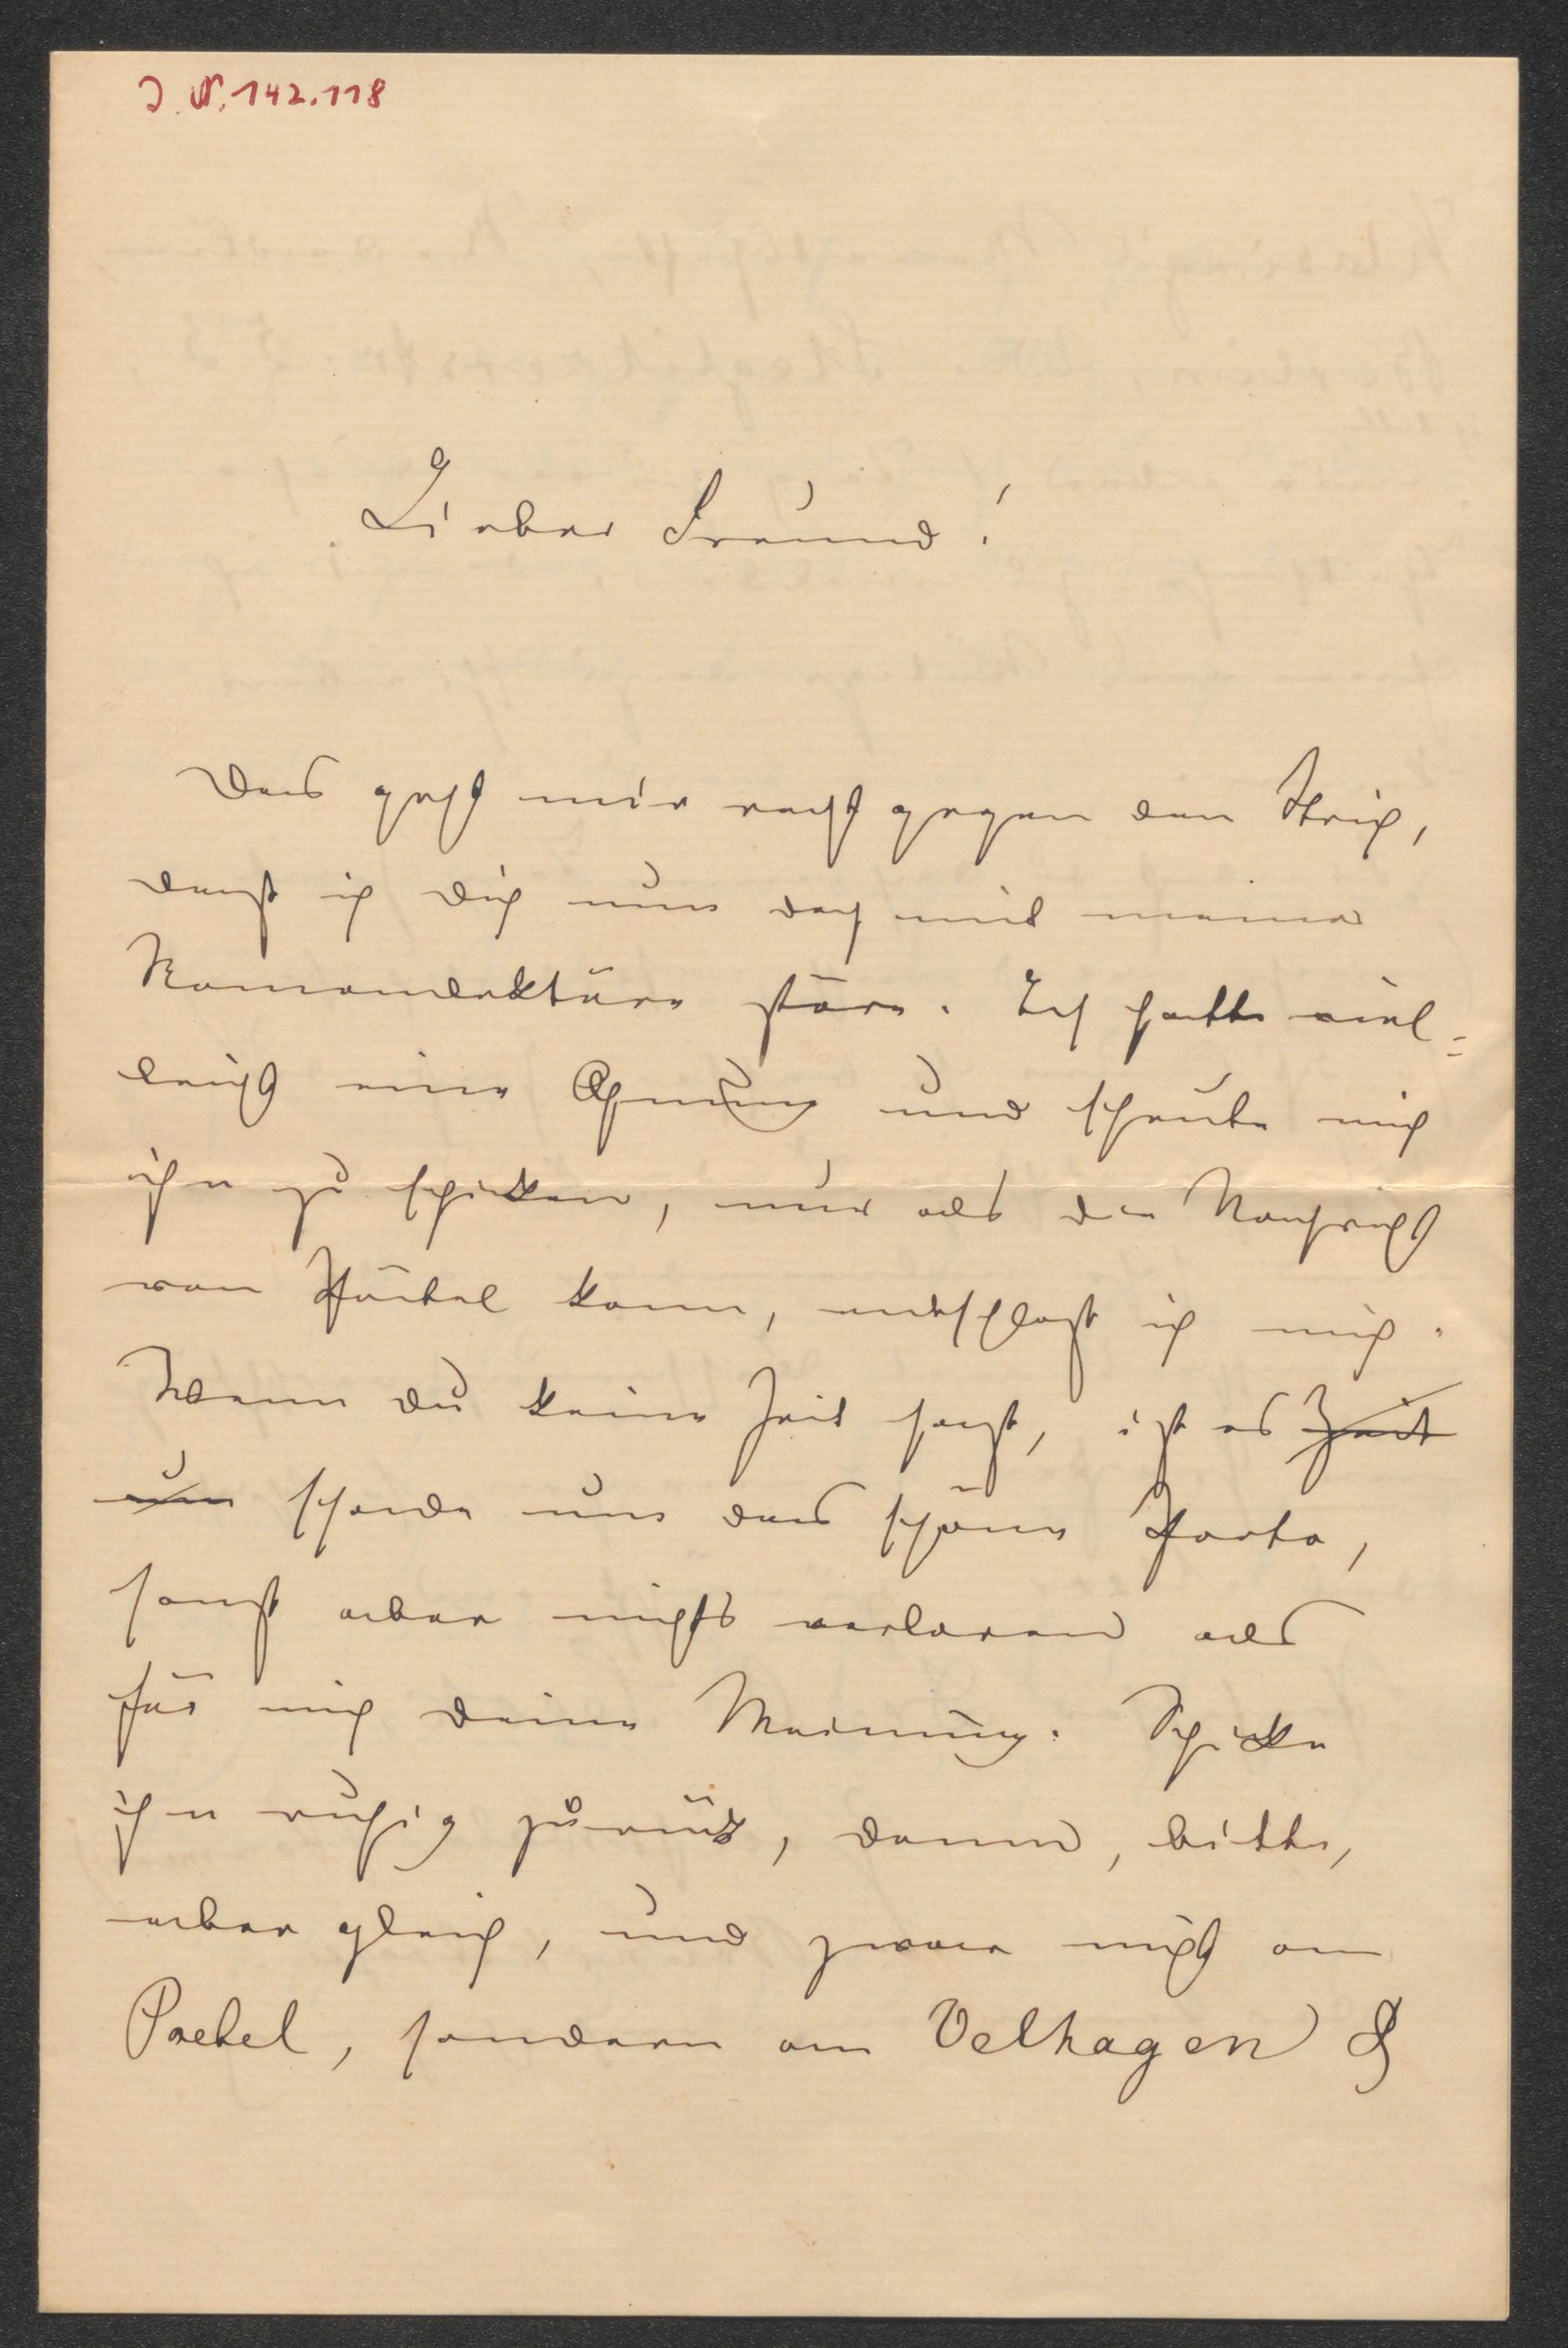 J. N. 142.118
Lieber Freund!
Das geht mir recht gegen den Strich,
daß ich Dich nun doch mit meiner
Romanlektüre störe. Ich hatte viel-
leicht eine Ahnung und scheute mich
ihn zu schicken, nur als die Nachricht
von Paetel kam, entschloß ich mich.
Wenn du keine Zeit hast, ist es Zeit
um schade um das schöne Porto,
sonst aber nichts verloren als
für mich deine Meinung. Schicke
ihn ruhig zurück, dann, bitte,
aber gleich, und zwar nicht an
Paetel, sondern an Velhagen &